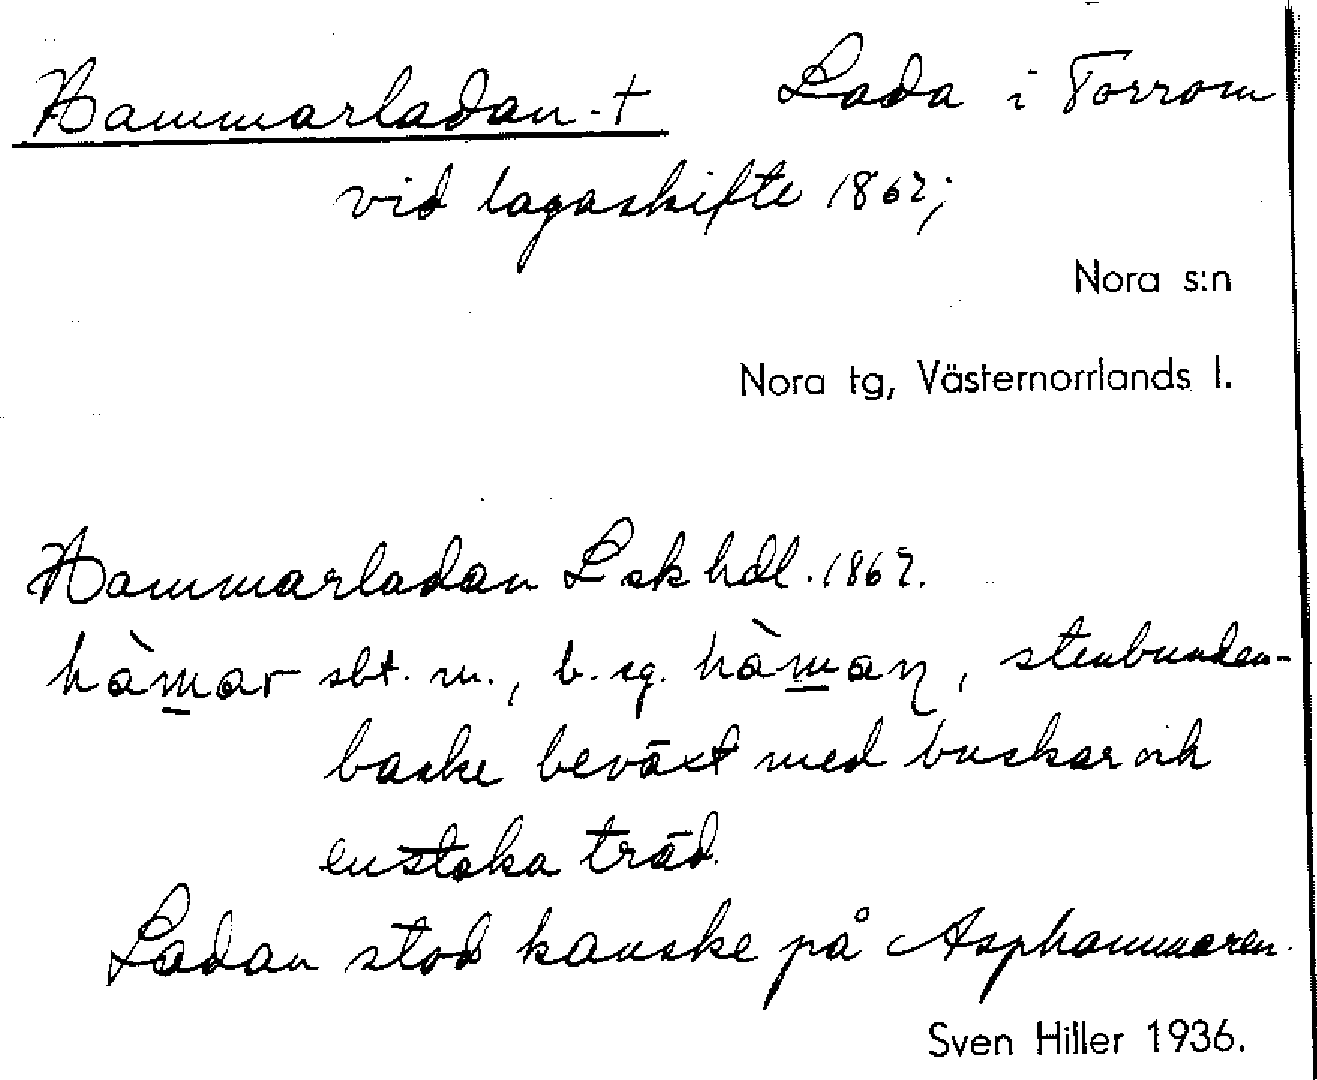 Hammarladan † Lada i Torrom
vid lagaskifte 1867;
Nora s:n
Nora tg, Västernorrlands l.
Hammarladan Lskhdl. 1867.
hàmar sbt. m., b. sg. hàman, stenbunden
backe beväxt med buskar och
enstaka träd.
Ladan stod kanske på Asphammaren.
Sven Hiller 1936.